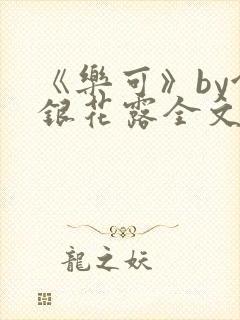 《樂可》by
銀花露全文
龍之妖